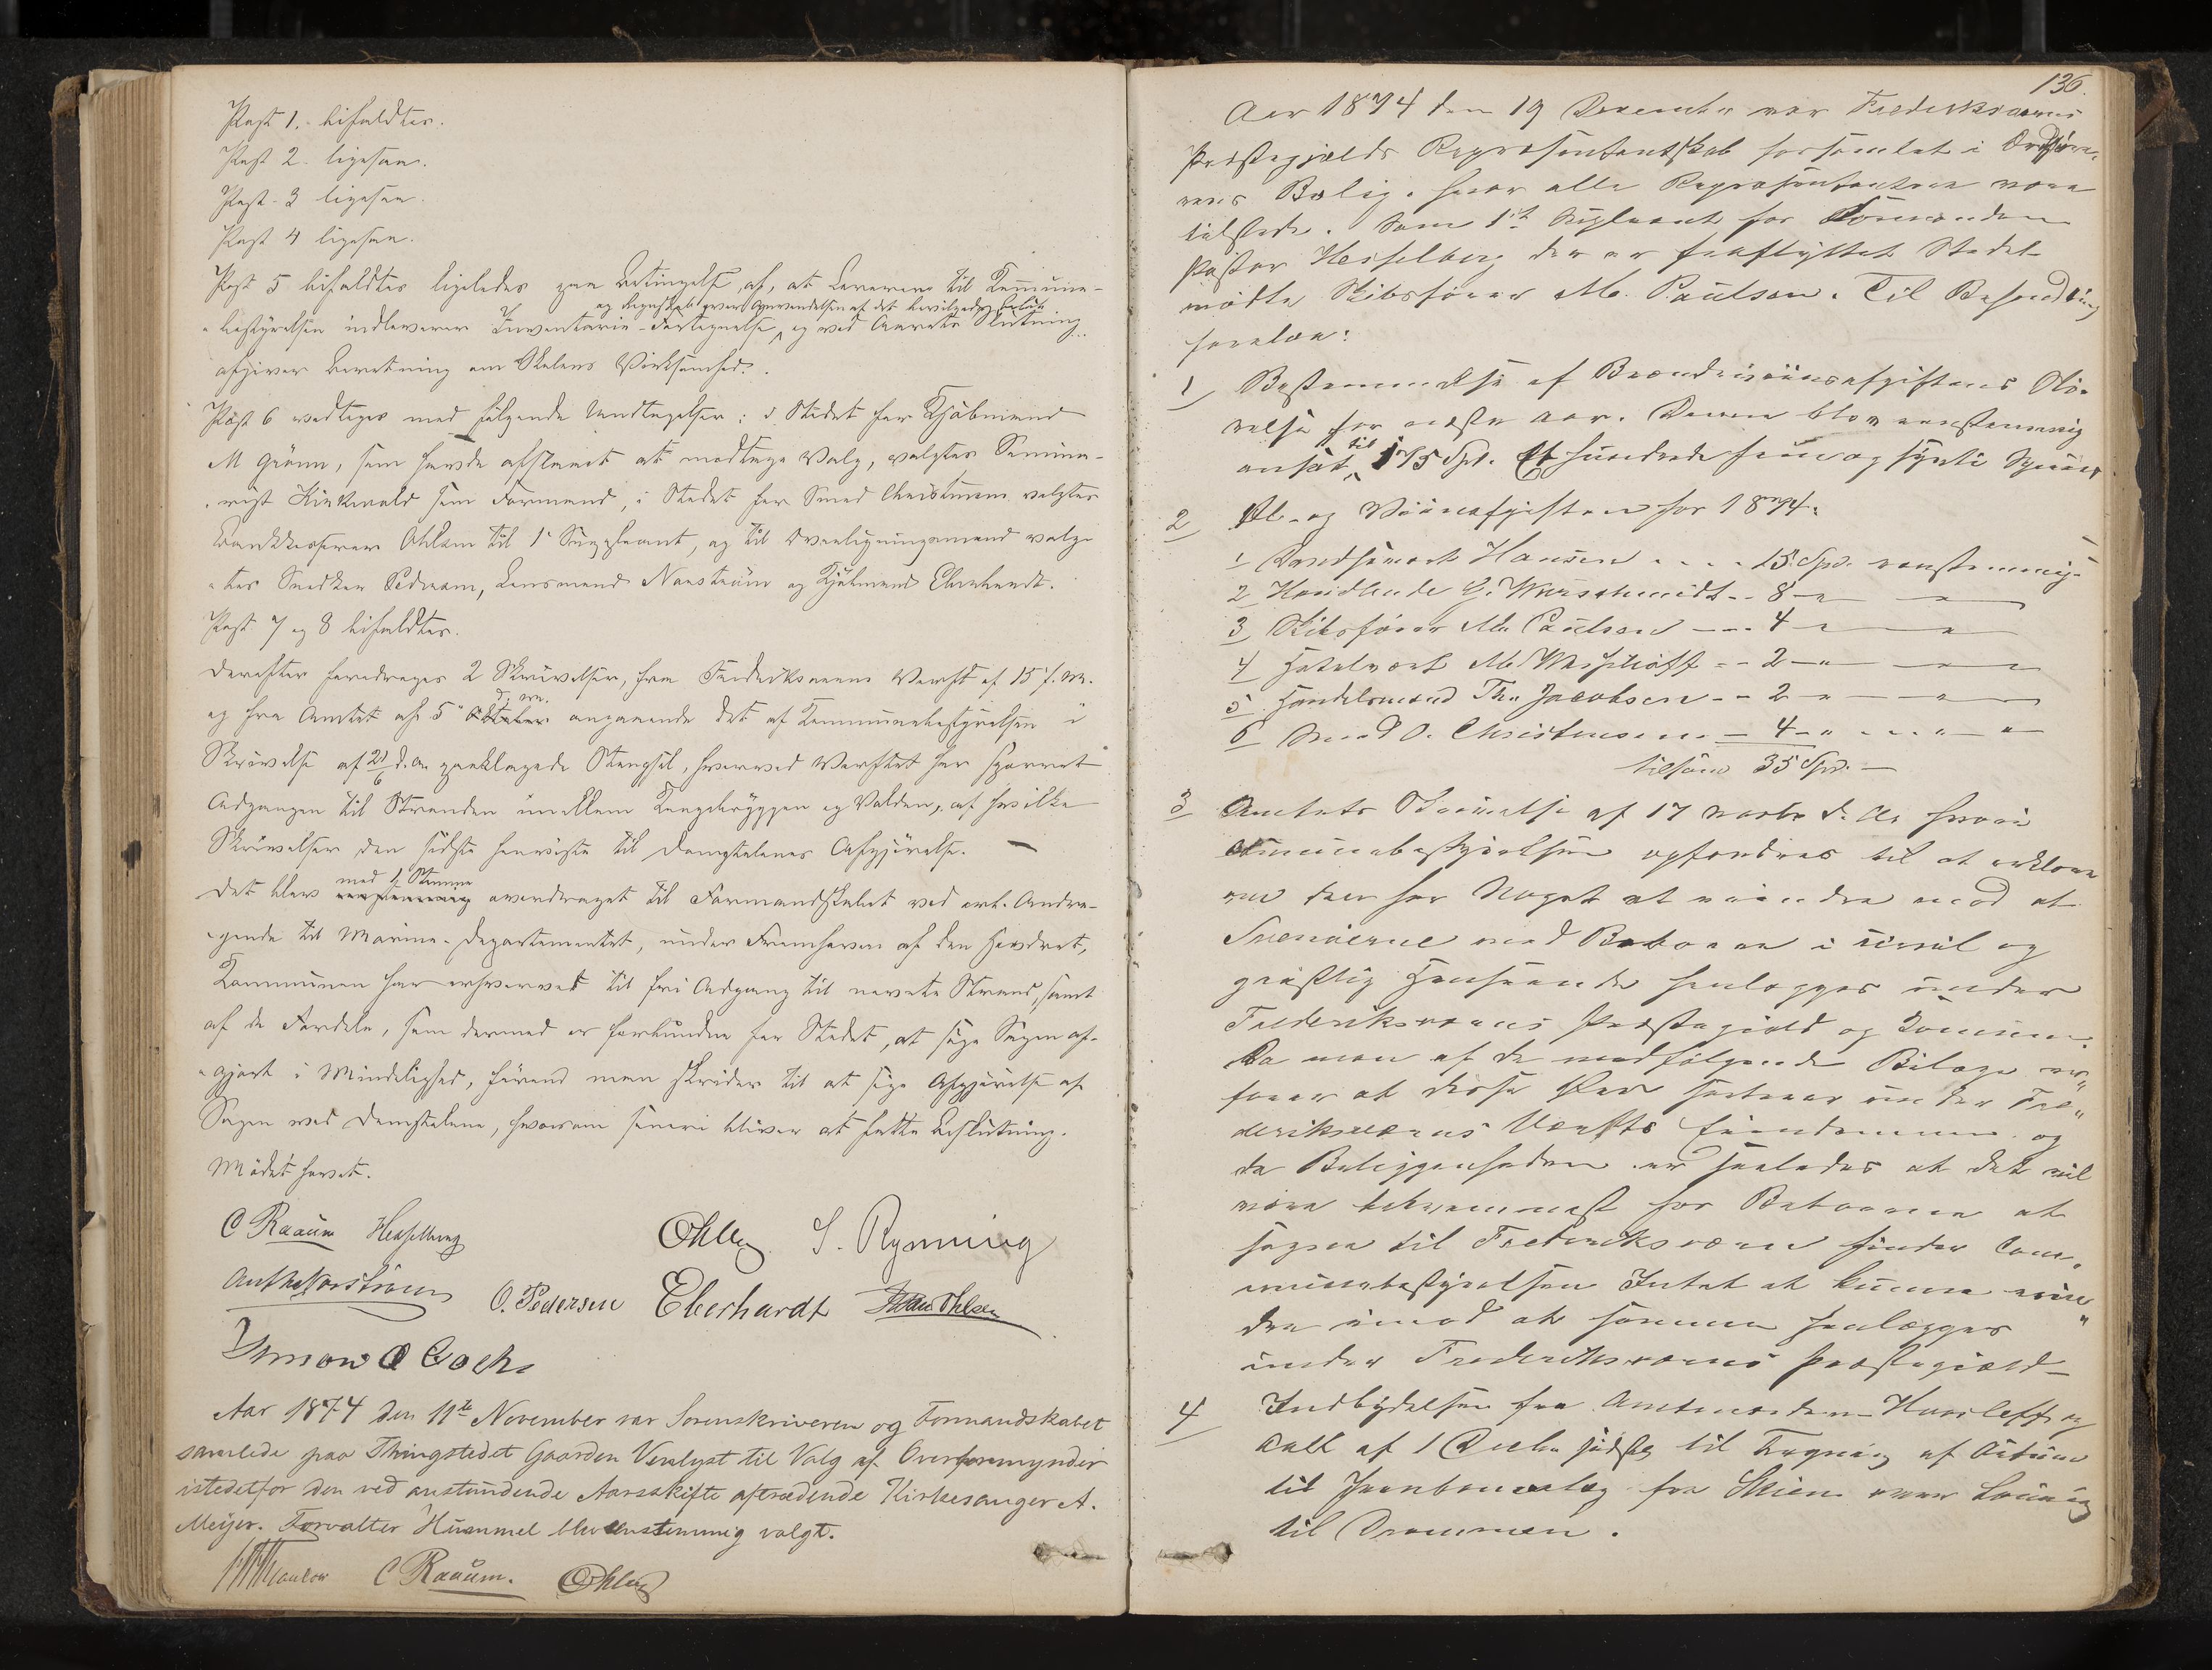 Post 1. bifaldtes.
Post 2. ligesaa.
Post 3 ligesaa.
Post 4 ligesaa.
Post 5 bifaldtes ligeledes paa Betingelse af, at Læreren til Kommune-
og Regnskab over Anvendelsen af det bevilgede Beløb
bestyrelsen indleverer Inventarie-Fortegnelse, og ved Aarets Slutning
afgiver Beretning om Skolens Virksomhed.
Post 6 vedtoges med følgende Undtagelser: i Stedet for Kjøbmand
M Grönn, som havde afslaaet at modtage Valg, valgtes Semina-
rist Kirkvold som Formand, i Stedet for Smed Christensen valgtes
Bankkasserer Ohlsen til 1ste Suppleant, og til Overligningsmænd valg-
tes Snedker Pedersen, Lensmand Norström og Kjøbmand Eberhardt.
Post 7 og 8 bifaldtes.
Derefter foredroges 2 Skrivelser, fra Frederiksværns Værft af 15 f. M.
d. M.
og fra Amtet af 5 Oktober angaaende det af Kommunebestyrelsen i
Skrivelse af 21/6 d. A. paaklagede Stængsel, hvorved Værftet har sperret
Adgangen til Stranden imellem Tangebryggen og Volden, af hvilke
Skrivelser den sidste henviste til Domstolenes Afgjørelse. —
med 1 Stemme
Det blev eenstemmig overdraget til Formandskabet ved ærb. Andra-
gende til Marine-Departementet, under Fremhæven af den Hævdsret,
Kommunen har erhvervet til fri Adgang til nævnte Strand, samt
af de Fordele, som dermed er forbunden for Stedet, at søge Sagen af-
gjort i Mindelighed, förend man skrider til at søge Afgjørelse af
Sagen ved Domstolene, hvorom senere bliver at fatte Beslutning.
Mödet hævet.
C Raaum Hesselberg Ohlsen S. Rynning
Norström O. Pedersen Eberhardt Ohlsen
Simon Goche
Aar 1874 den 11te November var Sorenskriveren og Formandskabet
samlede paa Thingstedet Gaarden Vemlyst til Valg af Overformynder
istedetfor den ved anstundende Aarsskifte aftrædende Kirkesanger A.
Meÿer. Forvalter Hummel blev eenstemmig valgt.
C Raaum. Ohlsen
136.
Aar 1874 den 19 December var Frederiksværns
Præstegjælds Repræsentantskab forsamlet i Ordföre-
rens Bolig, hvor alle Repræsentanterne vare
tilstede. Som 1ste Supleant for Formanden
Pastor Hesselberg der er fraflyttet Stedet
mødte Skibsfører M. Paulsen. Til Behandling
forelaa:
1 Bestemmelse af Brændeviinsafgiftens Stör-
relse for næste Aar. Denne blev eenstemmig
ansat til 175 Spd. Et hundrede fem og sytti Spd.
2 Øl- og Viinafgiften for 1874.
1 Landhandl. Hansen . . . . 15 Spd. eenstemmig.
2 Handlende G. Wurschmidt - - 8 - " - " -
3 Skibsfører M. Paulsen - - - 4 - " - " -
4 Hotelvært M. Wasshoff - - 2 - " - " -
5 Handelsmand Th. Jacobsen - - 2 - " - " -
6 Smed O. Christensen - 4 - " - " -
tilsam 35 Spd. —
3 Amtets Skrivelse af 17 Novbr d. A. hvori
Communebestyrelsen opfordres til at erklære
om den har Noget at erindre mod at
Svenøerne med Beboere i civil og
geistlig Henseende henlægges under
Frederiksværns Præstegjeld og Commune.
Da man af de medfølgende Bilage er-
farer at disse Øer sorterer under Fre-
deriksværns Værfts Eiendomme og
da Beliggenheden er saaledes at det vil
være bekvemmest for Beboerne at
søgne til Frederiksværn finder Com-
munebestyrelsen Intet at kunne erin-
dre imod at samme henlægges
under Frederiksværns Præstegjæld —
4 Indbydelse fra Amtmændene Hoorleff og
Aall af 1 Decbr sidste til Tegning af Actier
til Jernbaneanlæg fra Skien over Laurvig
til Drammen.